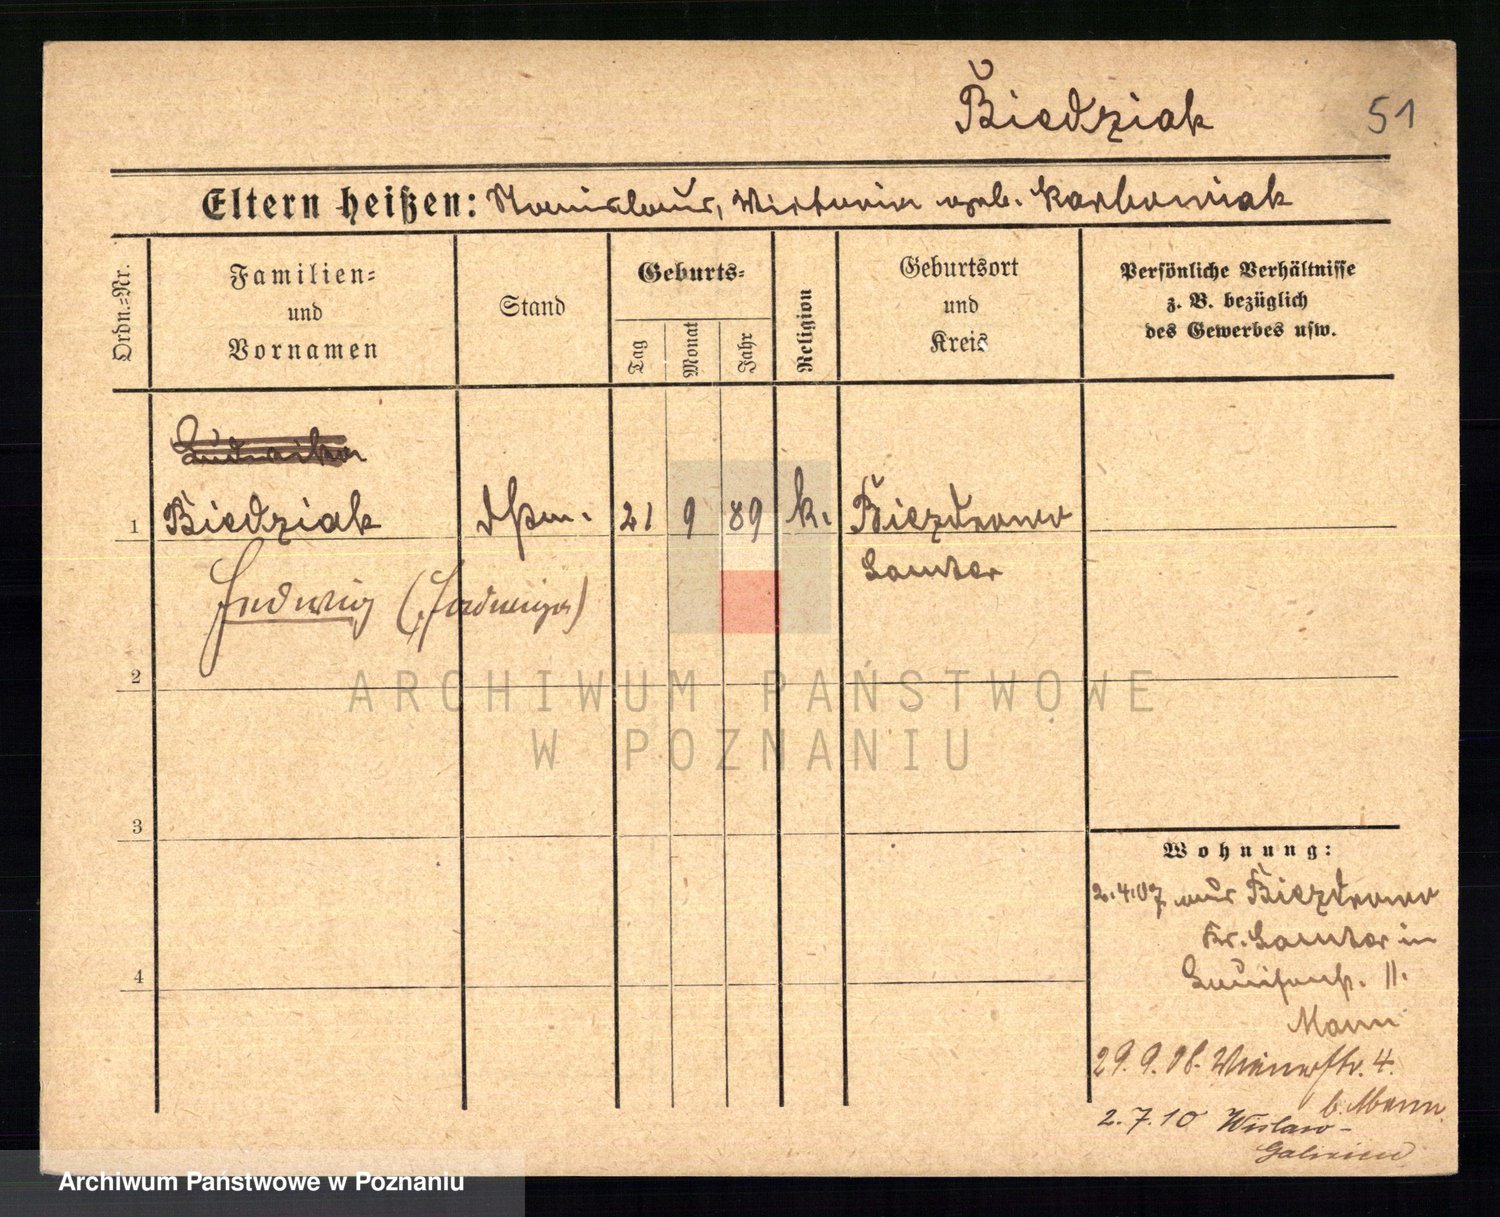 Biedziak
51
Eltern heißen: Stanislaus, Wictoria geb. Karbowiak
Ordn.-Nr.
Familien-
und
Vornamen
Stand
Geburts-
Tag
Monat
Jahr
Religion
Geburtsort
und
Kreis
Persönliche Verhältnisse
z. B. bezüglich
des Gewerbes usw.
Ludwika
1 Biedziak 21 9 89 k. Biezdrowo
Samter
Hedwig (Jadwiga)
2
3
4
Wohnung:
2.4.07 aus Biezdrowo
Kr. Samter in
Louisenst. 11.
Mann
29.9.08. Wienerstr. 4.
b. Mann.
2.7.10 Wislaw-
Galizien
ARCHIWUM PAŃSTWOWE
W POZNANIU
Archiwum Państwowe w Poznaniu